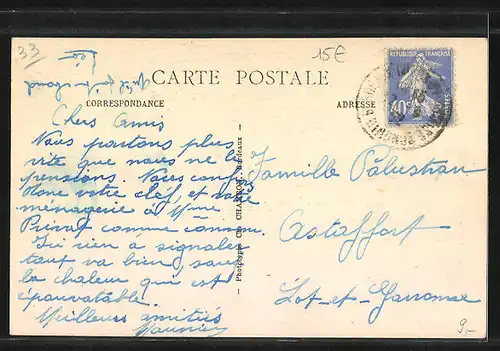 33
15€
RÉPUBLIQUE FRANÇAISE
40c
POSTES
CARTE POSTALE
CORRESPONDANCE
ADRESSE
Chers Amis
Nous partons plus
vite que nous ne le
pensions. Nous
donc votre clef, et votre
ménagère à Mme
comme convenu.
Ici rien à signaler
tout va bien, sauf
la chaleur qui est
épouvatable.
Meilleurs amitiés
Phototypie Chambon, Bordeaux
Famille Palustran
Astaffort
Lot-et-Garonne
9,-